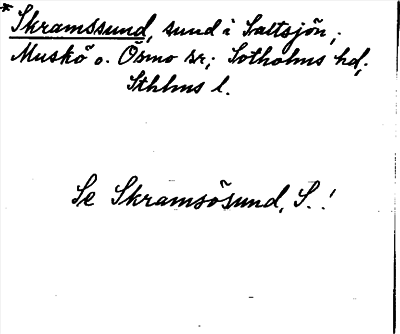 * Skramssund, sund i Saltsjön,
Muskö o. Ösmo sr; Sotholms hd,
Sthlms l.
Se Skramsösund, S.!